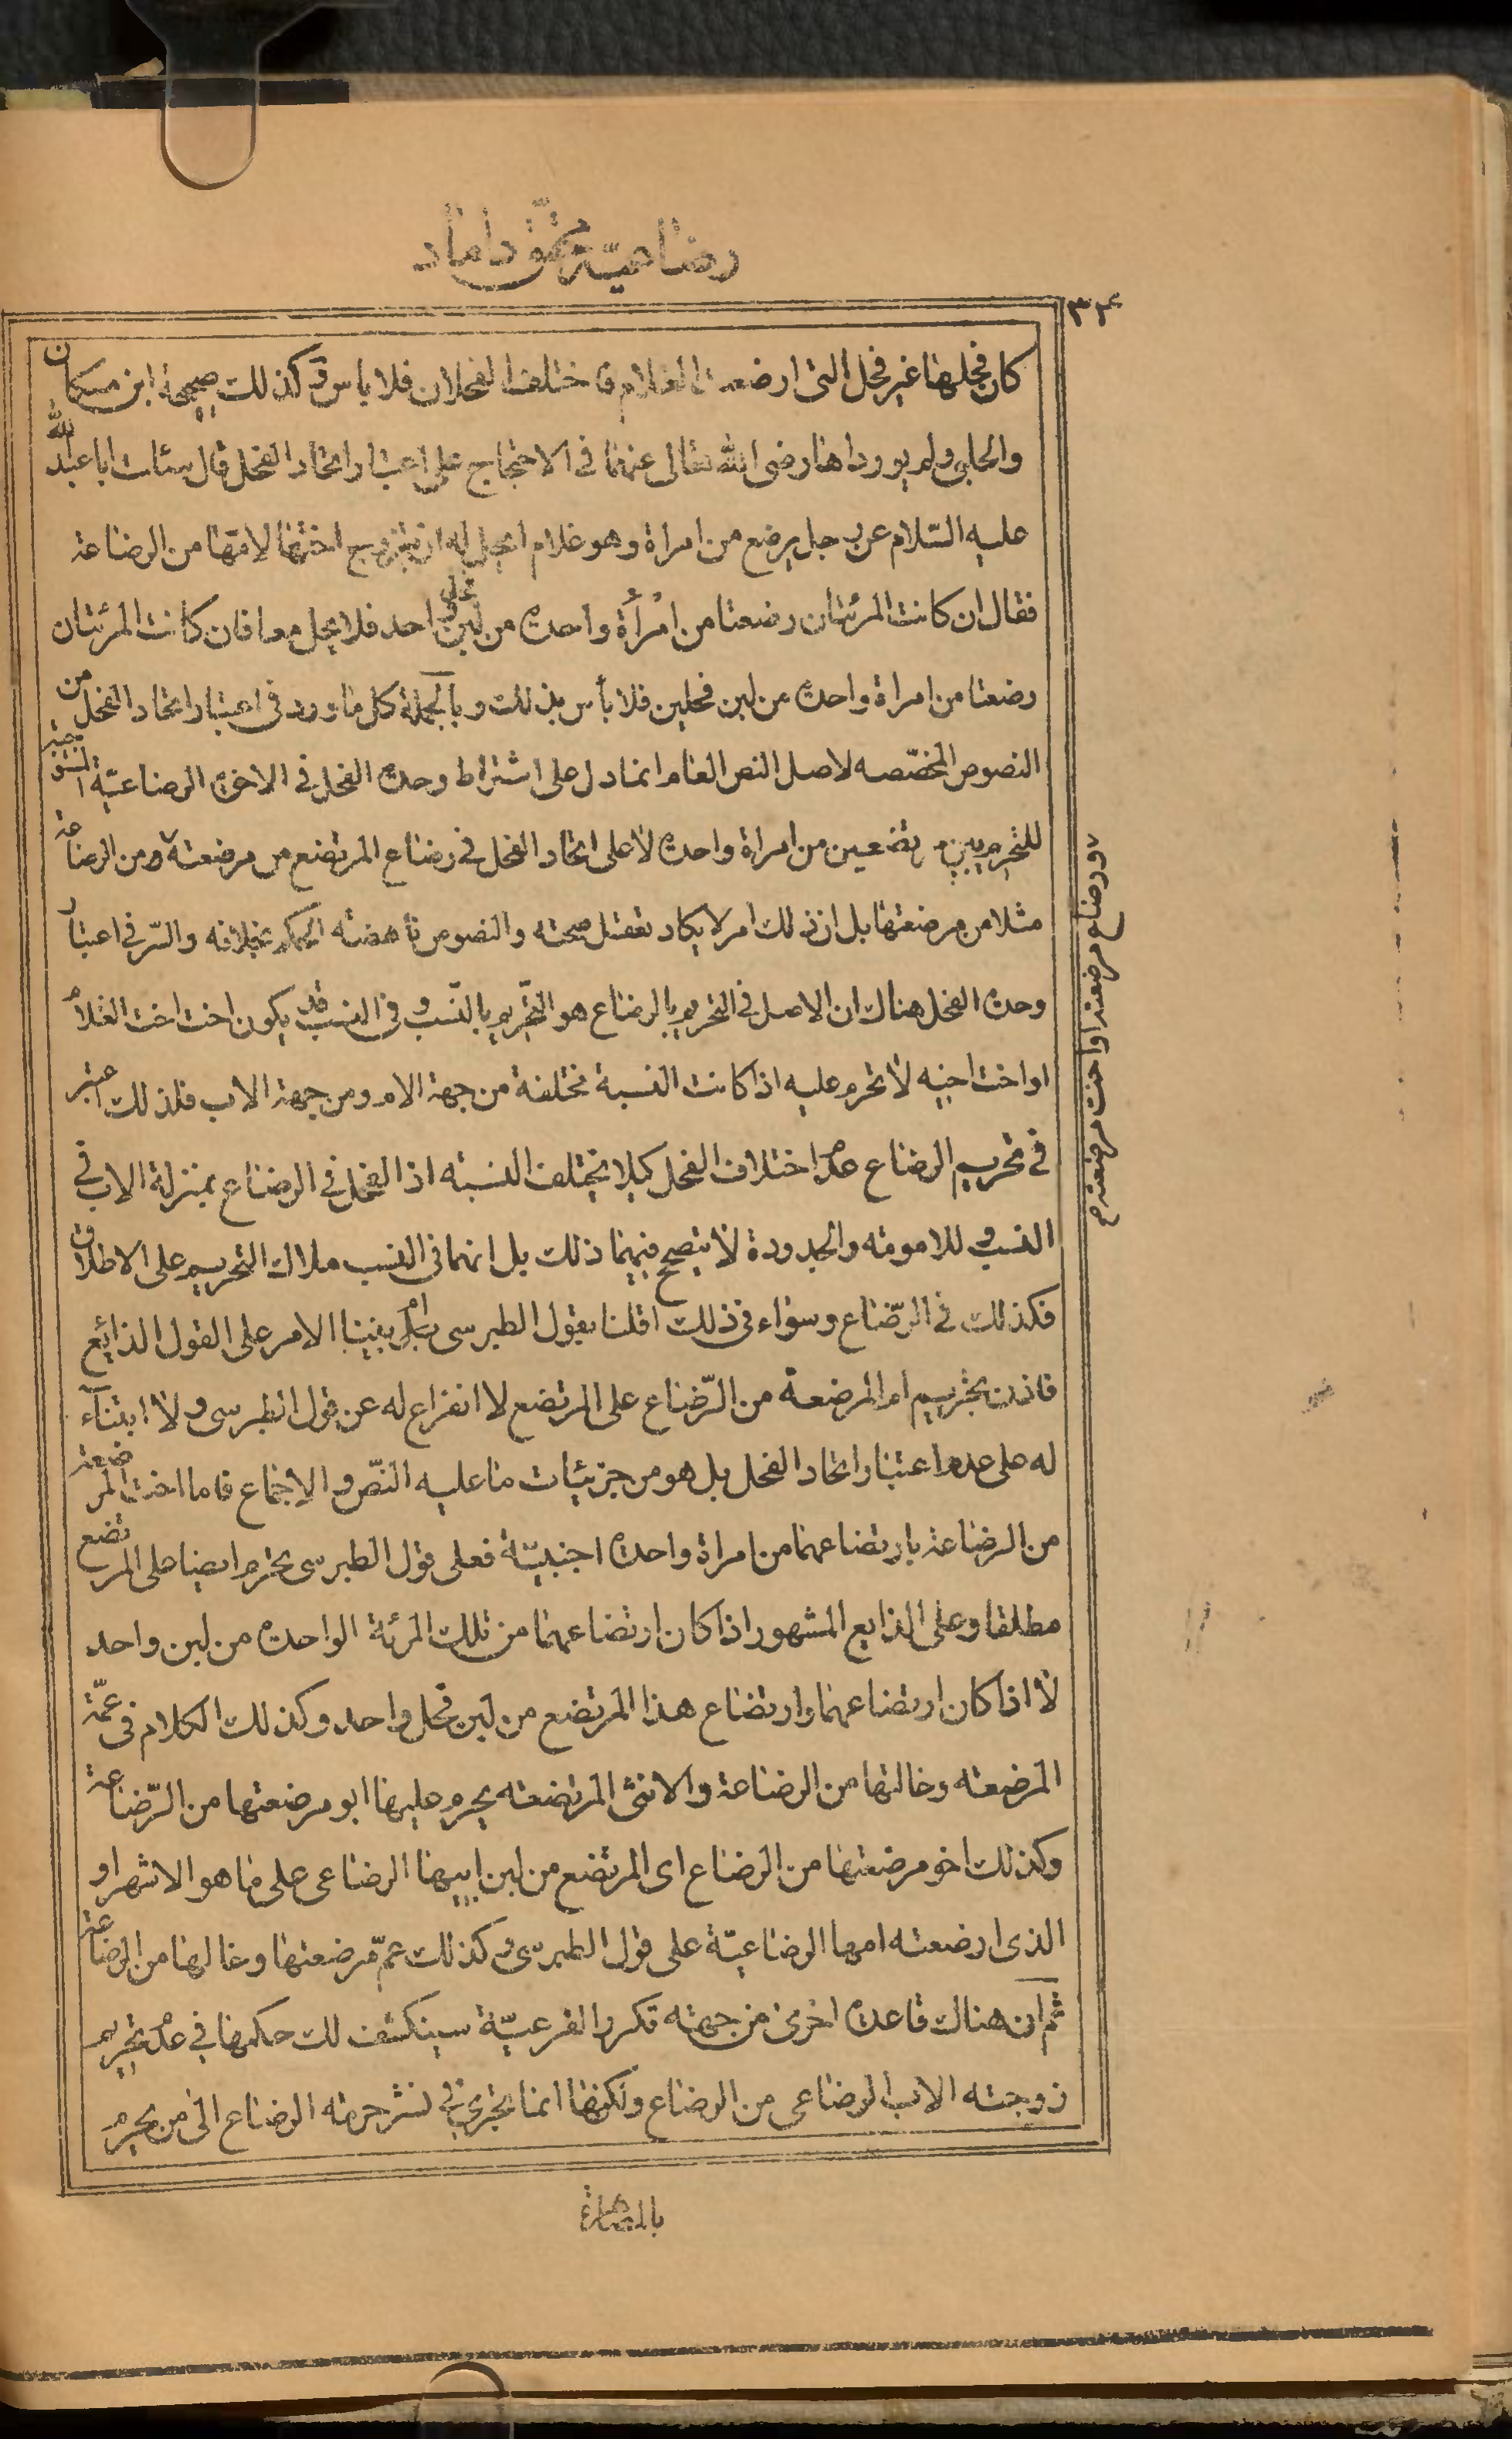 رضاعيّة محقّق داماد
٣٤
كان فحلها غير فحل التى ارضعت الغلام فاختلف الفحلان فلا باس وكذلك صحيحة ابن مسكان
والحلبى ولم يورداها رضى الله تعالى عنهما فى الاحتجاج على اعتبار اتحاد الفحل قال سئلت ابا عبد الله
عليه السّلام عن رجل يرضع من امراة وهو غلام ايحل له ان يتزوج اختها لامّها من الرضاعة
فقال ان كانت المرئتان رضعتا من امْرأة واحدة من لبن فحل واحد فلا يحل معا فان كانت المرئتان
رضعتا من امراة واحدة من لبن فحلين فلا بأس بذلك وبالجملة كل ما ورد فى اعتبار اتحاد الفحل من
النصوص المخصّصه لاصل النص العام انما دل على اشتراط وحدة الفحل فى الاخوة الرضاعيّة المستوجبة
للتحريم بين مرتضعين من امراة واحدة لا على اتحاد الفحل فى رضاع المرتضع من مرضعته ومن الرضاعة
مثلا من مرضعتها بل ان ذلك امر لا يكاد تعقل صحته والنصوص ناهضة الحكم بخلافه والسّر فى اعتبار
وحدة الفحل هناك ان الاصل فى التحريم بالرضاع هو التّحريم بالنّسب وفى النسب قد يكون اخت اخت الغلام
او اخت اخيه لا تحرم عليه اذا كانت النسبة مختلفة من جهة الام ومن جهة الاب فلذلك اعتبر
فى تحريم الرضاع عدم اختلاف الفحل كيلا يختلف النسبة اذ الفحل فى الرضاع بمنزلة الاب فى
النسب وللامومة والجدودة لا يتصحح فيهما ذلك بل انهما فى النسب ملاك التحريم على الاطلاق
فكذلك فى الرّضاع وسواء فى ذلك اقلنا بقول الطبرسى ام بنينا الامر على القول الذائع
فاذن تحريم ام المرضعة من الرّضاع على المرتضع لا انفراع له عن قول الطبرسى ولا ابتناء
له على عدم اعتبار اتحاد الفحل بل هو من جزئيات ما عليه النّص والاجماع فاما اخت المرضعة
من الرضاعة بارتضاعهما من امراة واحدة اجنبيّة فعلى قول الطبرسى يحرم ايضا على المرتضع
مطلقا وعلى الذايع المشهور اذا كان ارتضاعهما من تلك المرئة الواحدة من لبن واحد
لا اذا كان ارتضاعهما وارتضاع هذا المرتضع من لبن فحل واحد وكذلك الكلام فى عمّة
المرضعة وخالتها من الرضاعة والانثى المرتضعة يحرم عليها ابو مرضعتها من الرّضاعة
وكذلك اخو مرضعتها من الرضاع اى المرتضع من لبن ابيها الرضاعى على ما هو الاشهر او
الذى ارضعته امها الرضاعيّة على قول الطبرسى وكذلك عمّ مرضعتها وخالها من الرضاعة
ثم ان هناك قاعدة اخرى من جهة تكرر الفرعيّة سينكشف لك حكمها فى عدم تحريم
زوجة الاب الرضاعى من الرضاع ولكنها انما تجرى فى نشر حرمة الرضاع الى من يحرم
بالمصاهرة
ورضاع مرضعته او اخت مرضعته